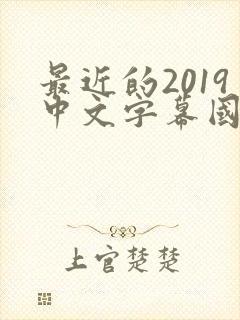 最近的2019
中文字幕國
上官楚楚